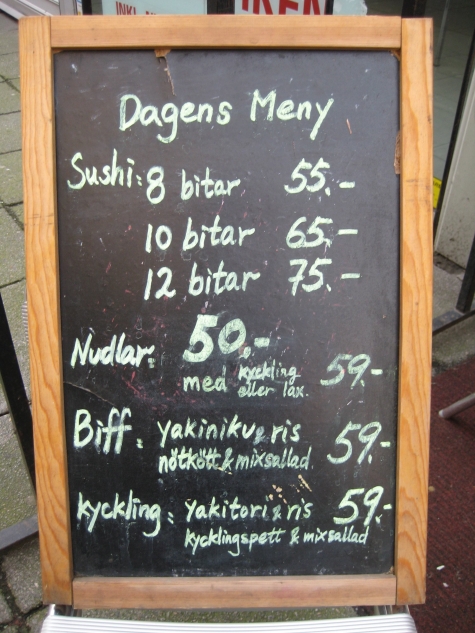 Dagens Meny
Sushi: 8 bitar 55.-
10 bitar 65.-
12 bitar 75.-
Nudlar: 50.-
med kyckling eller lax. 59.-
Biff: yakiniku & ris 59.-
nötkött & mixsallad.
kyckling: yakitori & ris 59.-
kycklingspett & mixsallad